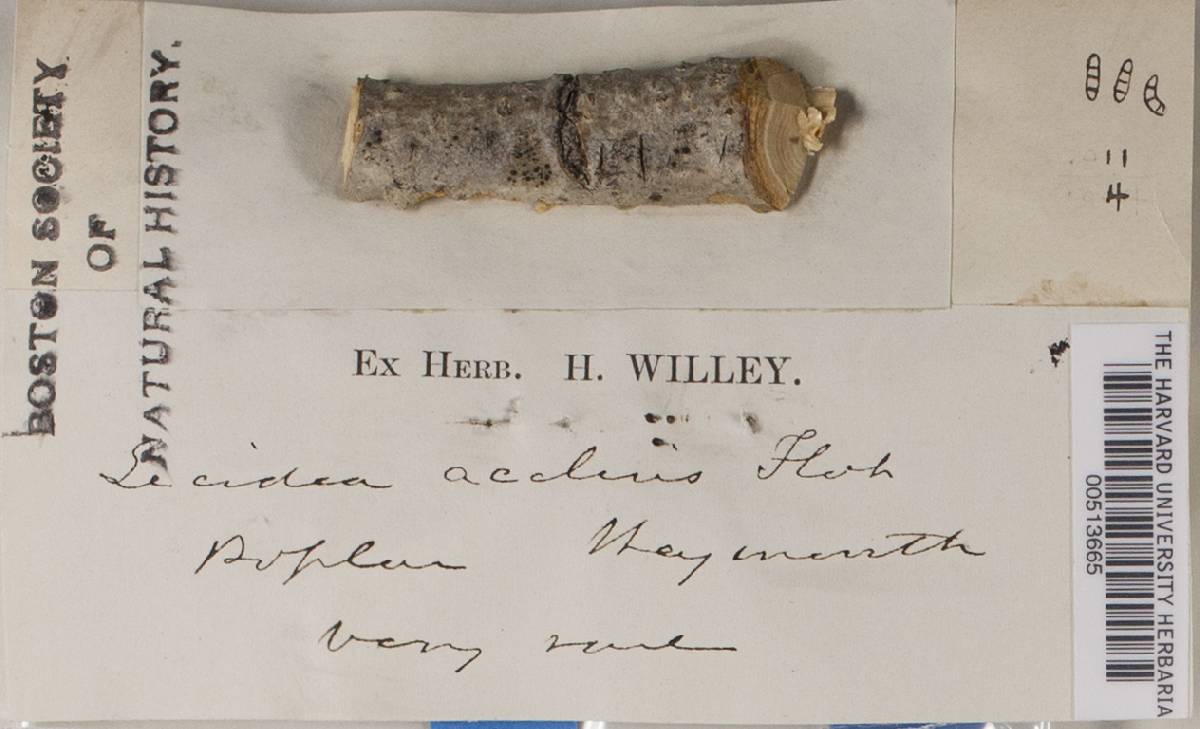 BOSTON SOCIETY
OF
NATURAL HISTORY.
= 4
EX HERB. H. WILLEY.
Lecidea acclinis Flot
Poplar Weymouth
very rare
THE HARVARD UNIVERSITY HERBARIA
00513665